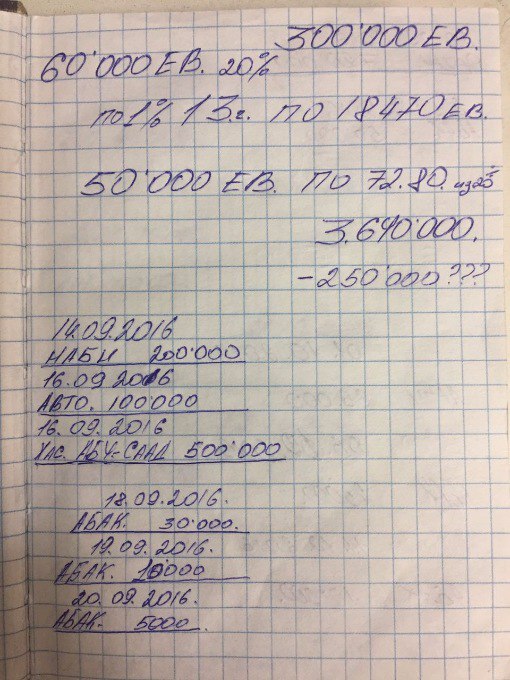 300'000 ЕВ.
60'000 ЕВ. 20%
по 1% 13.г. ПО 18470 ЕВ.
50'000 ЕВ. ПО 72.80.
3.640'000.
-250'000???
14.09.2016
НАБИ 200'000
16.09 2016
АВТО. 100'000
16.09.2016
ХАС. АБУ-СААД 500'000
18.09.2016.
АБАК. 30'000.
19.09.2016.
АБАК. 10'000
20.09.2016.
АБАК- 5000.